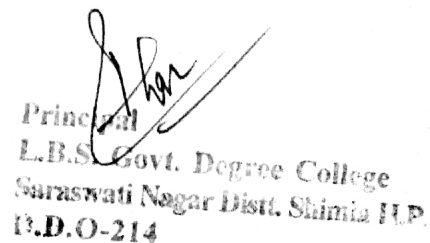 Principal
L.B.S. Govt. Degree College
Saraswati Nagar Distt. Shimla H.P.
D.D.O-214